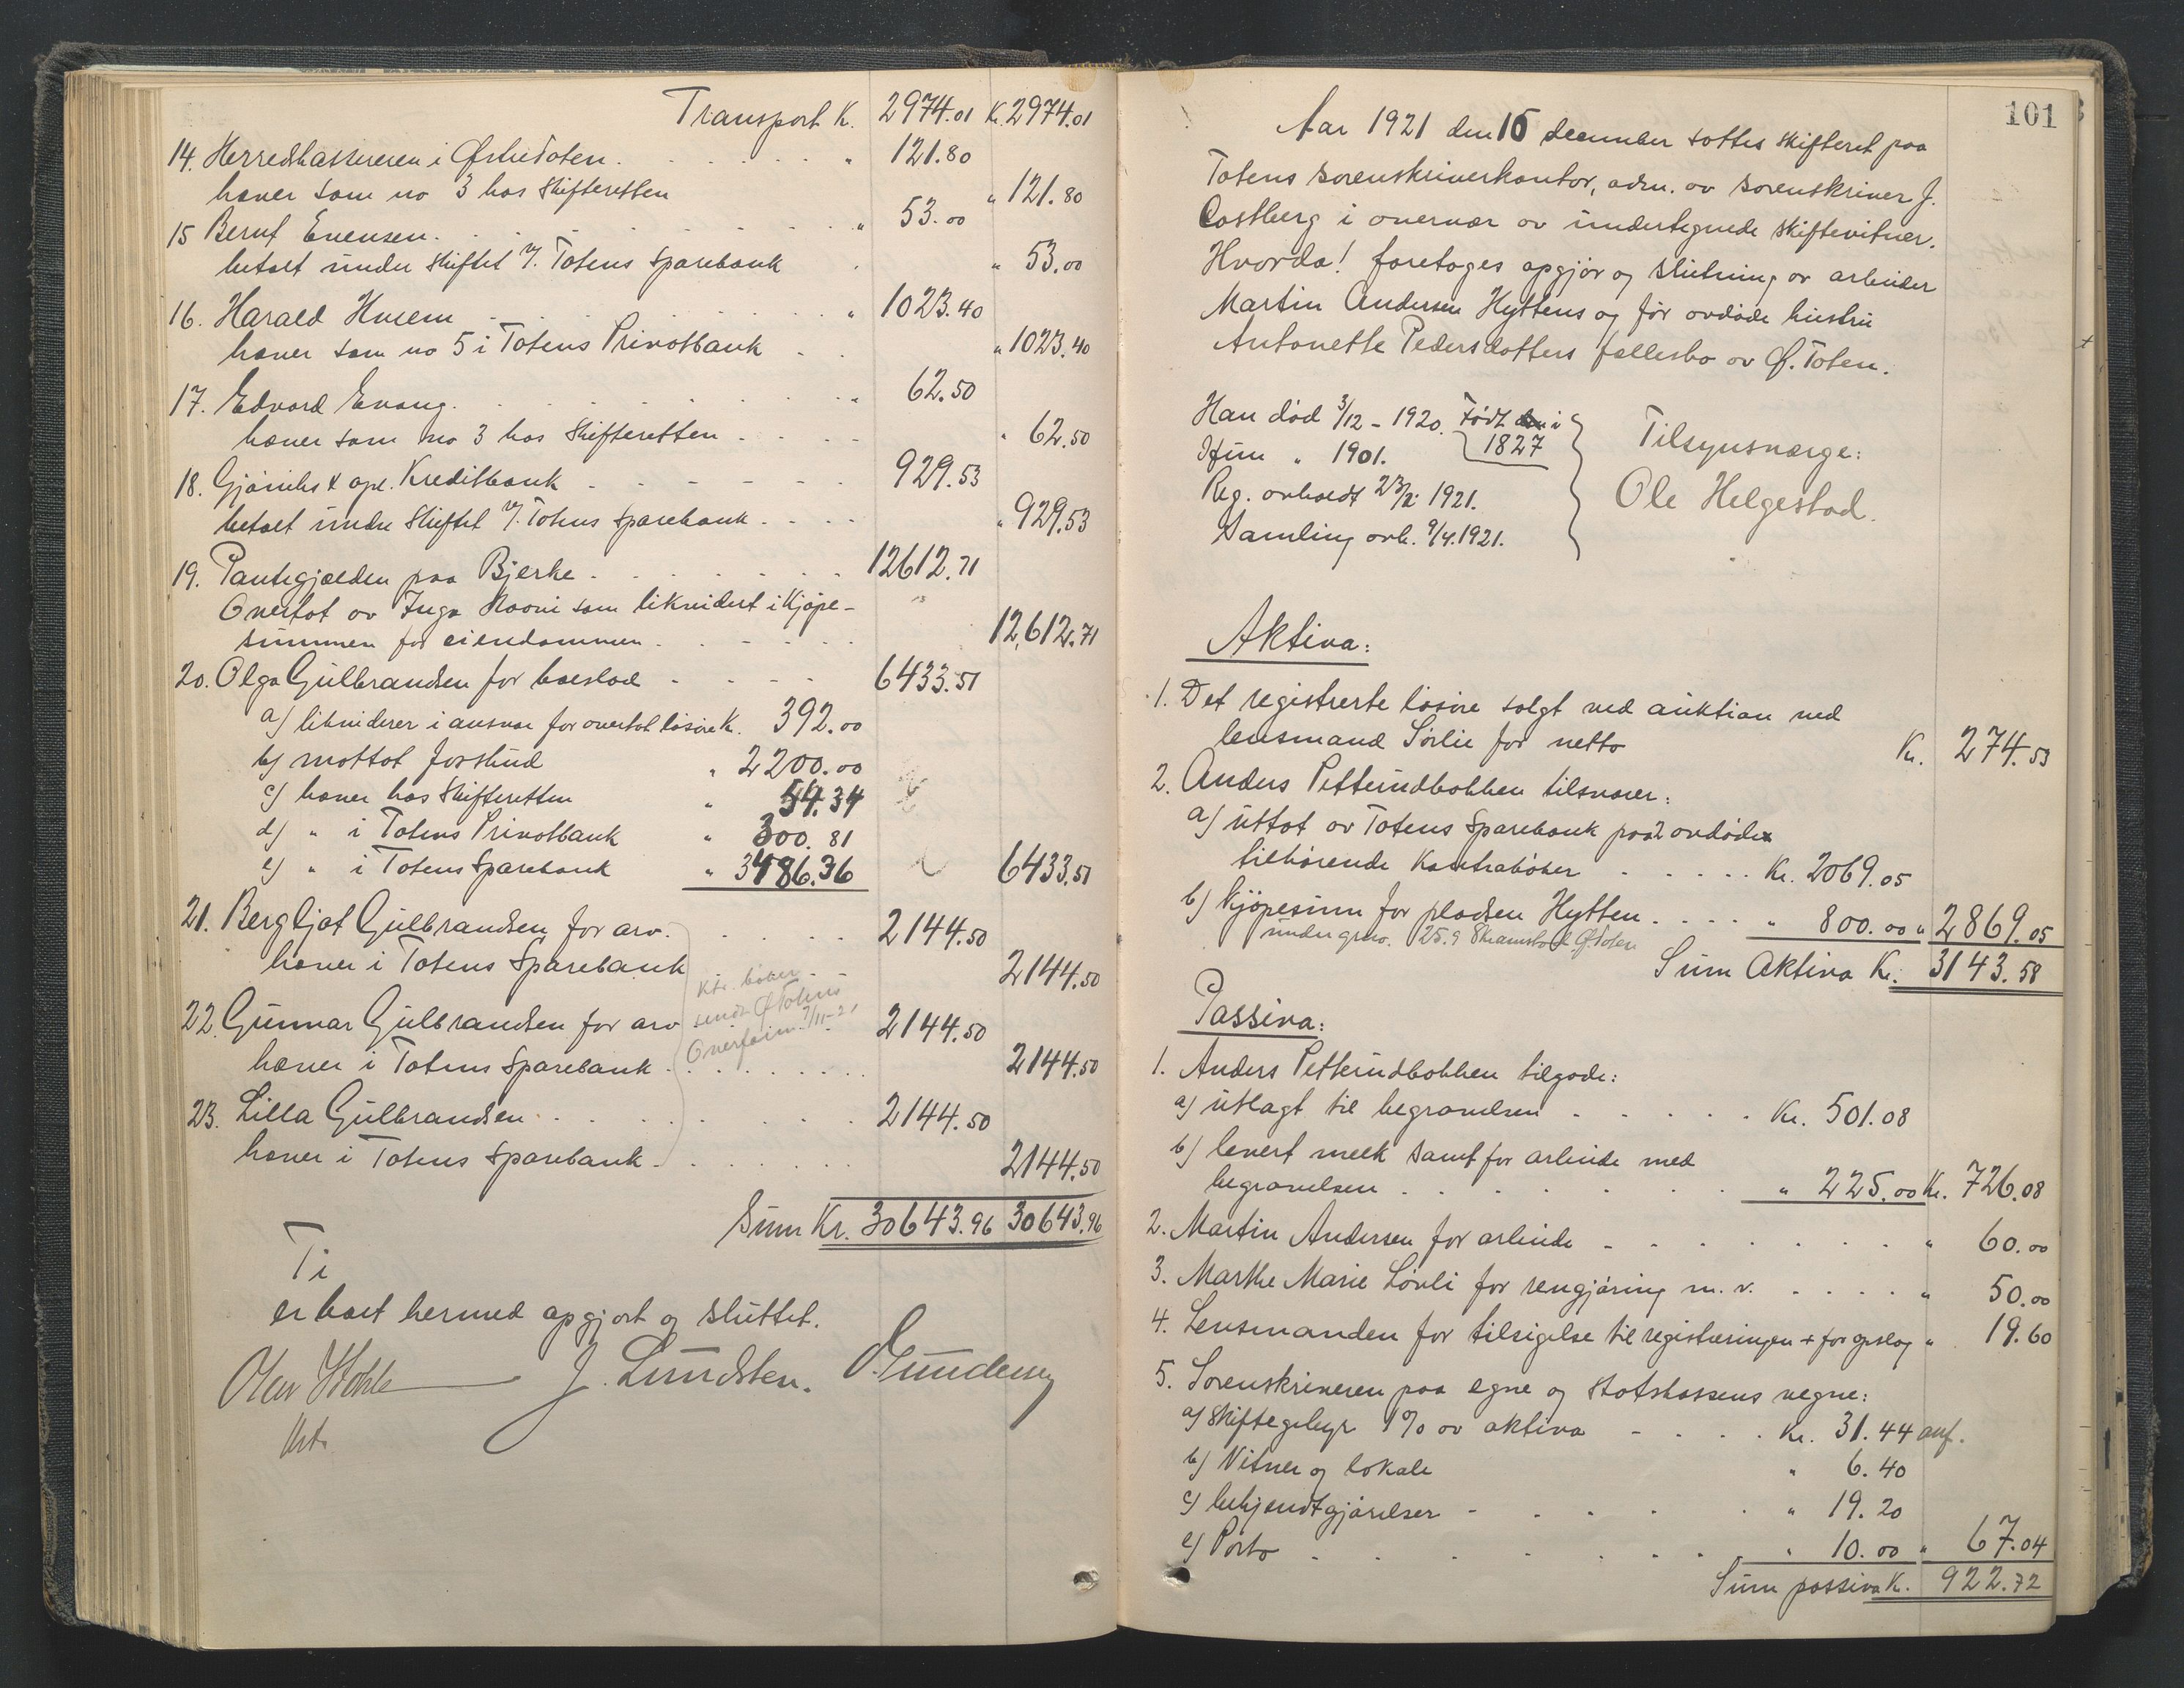 Transport K. 2974.01 K. 2974.01
14. Herredskassereren i Østre Toten. " 121.80
hæver som no 3 hos skifteretten " 121.80
15 Bernt Evensen. " 53.00
betalt under skiftet v/. Totens Sparebank " 53.00
16. Harald Husem " 1023.40
hæver som no 5 i Totens Privatbank " 1023.40
17. Edvard Evang. " 62.50
hæver som no 3 hos skifteretten " 62.50
18. Gjøviks & opl. Kreditbank 929.53
betalt under skiftet v/. Totens Sparebank " 929.53
19. Pantegjælden paa Bjerke 12612.71
Overtat av Inga som likvidert i kjøpe-
summen for eiendommen 12,612.71
20. Olga Gulbrandsen for boeslod 6433.51
a) likviderer i ansvar for overtat løsøre K. 392.00
b) mottat forskud " 2200.00
c) hæver hos skifteretten " 54.34
d) " i Totens Privatbank " 300.81
e) " i Totens Sparebank " 3486.36 6433.51
21. Bergljot Gulbrandsen for arv. 2144.50
hæver i Totens Sparebank 2144.50
Ktr. bøker
sendt Ø Totens
Overform. 7/11-21
22. Gunnar Gulbrandsen for arv 2144.50
hæver i Totens Sparebank 2144.50
23. Lilla Gulbrandsen 2144.50
hæver i Totens Sparebank 2144.50
Sum Kr. 30643.96 30643.96
Ti
er boet hermed opgjort og sluttet.
J. Lundsten.
101
Aar 1921 den 16 december sattes skifteret paa
Totens sorenskriverkontor, adm. av sorenskriver J.
Castberg i overvær av undertegnede skiftevitner.
Hvorda! foretoges opgjør og slutning av arbeider
Martin Andersen Hyttens og før avdøde hustru
Antonette Pedersdatters fællesbo av Ø. Toten.
Han død 3/12 - 1920. Født i
1827
Hun " 1901.
Reg. avholdt 23/2 1921.
Samling avh. 9/4. 1921.
Tilsynsværge:
Ole Helgestad.
Aktiva:
1. Det registrerte løsøre solgt ved auktion ved
lensmand Sørlie for netto Kr. 274.53
2. Anders Petterudbakken tilsvarer:
a) uttat av Totens Sparebank paa 2 avdøde
tilhørende kontrabøker Kr. 2069.05
b) kjøpesum for pladsen Hytten " 800.00 " 2869.05
under grno. 25.9 Skramstad Ø. Toten
Sum Aktiva Kr. 3143.58
Passiva:
1. Anders Petterudbakken tilgode:
a) utlagt til begravelsen Kr. 501.08
b) levert melk samt for arbeide med
begravelsen " 225.00 Kr. 726.08
2. Martin Andersen for arbeide " 60.00
3. Marthe Marie Løvli for rengjøring m. v. " 50.00
4. Lensmanden for tilsigelse til registreringen + for opslag " 19.60
5. Sorenskriveren paa egne og statskassens vegne:
a) skiftegebyr 1% av aktiva Kr. 31.44 anf.
b) Vitner og lokale " 6.40
c) bekjendtgjørelser " 19.20
e) Porto " 10.00 " 67.04
Sum passiva K. 922.72